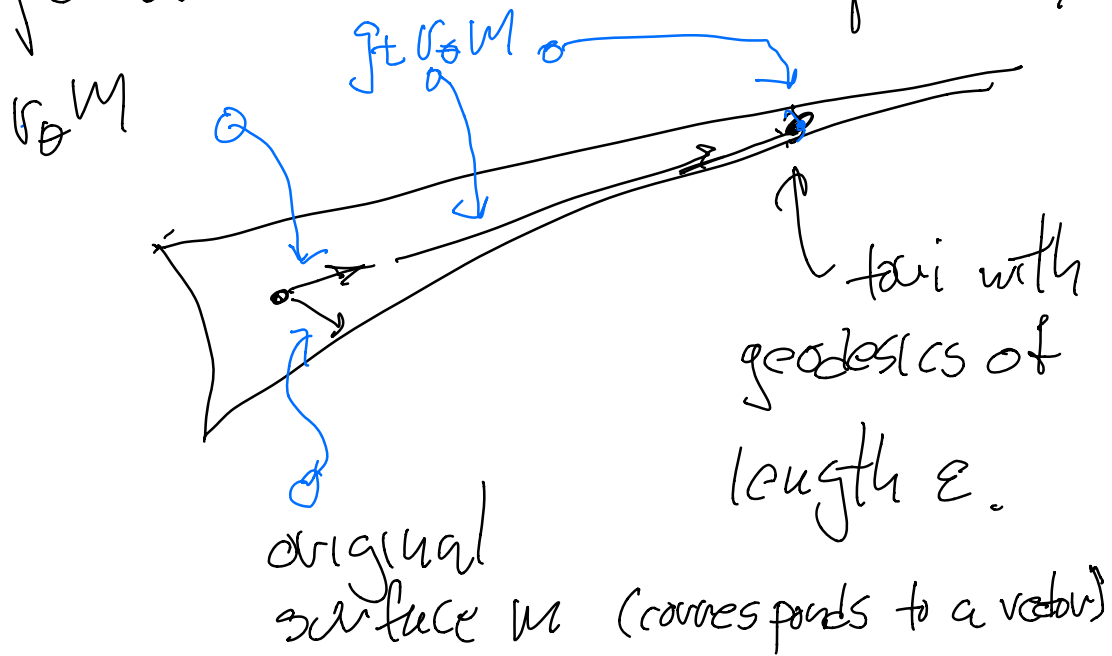 g_t r_θ M
r_θ M
tori with
geodesics of
length ε.
original
surface M (corresponds to a vector)